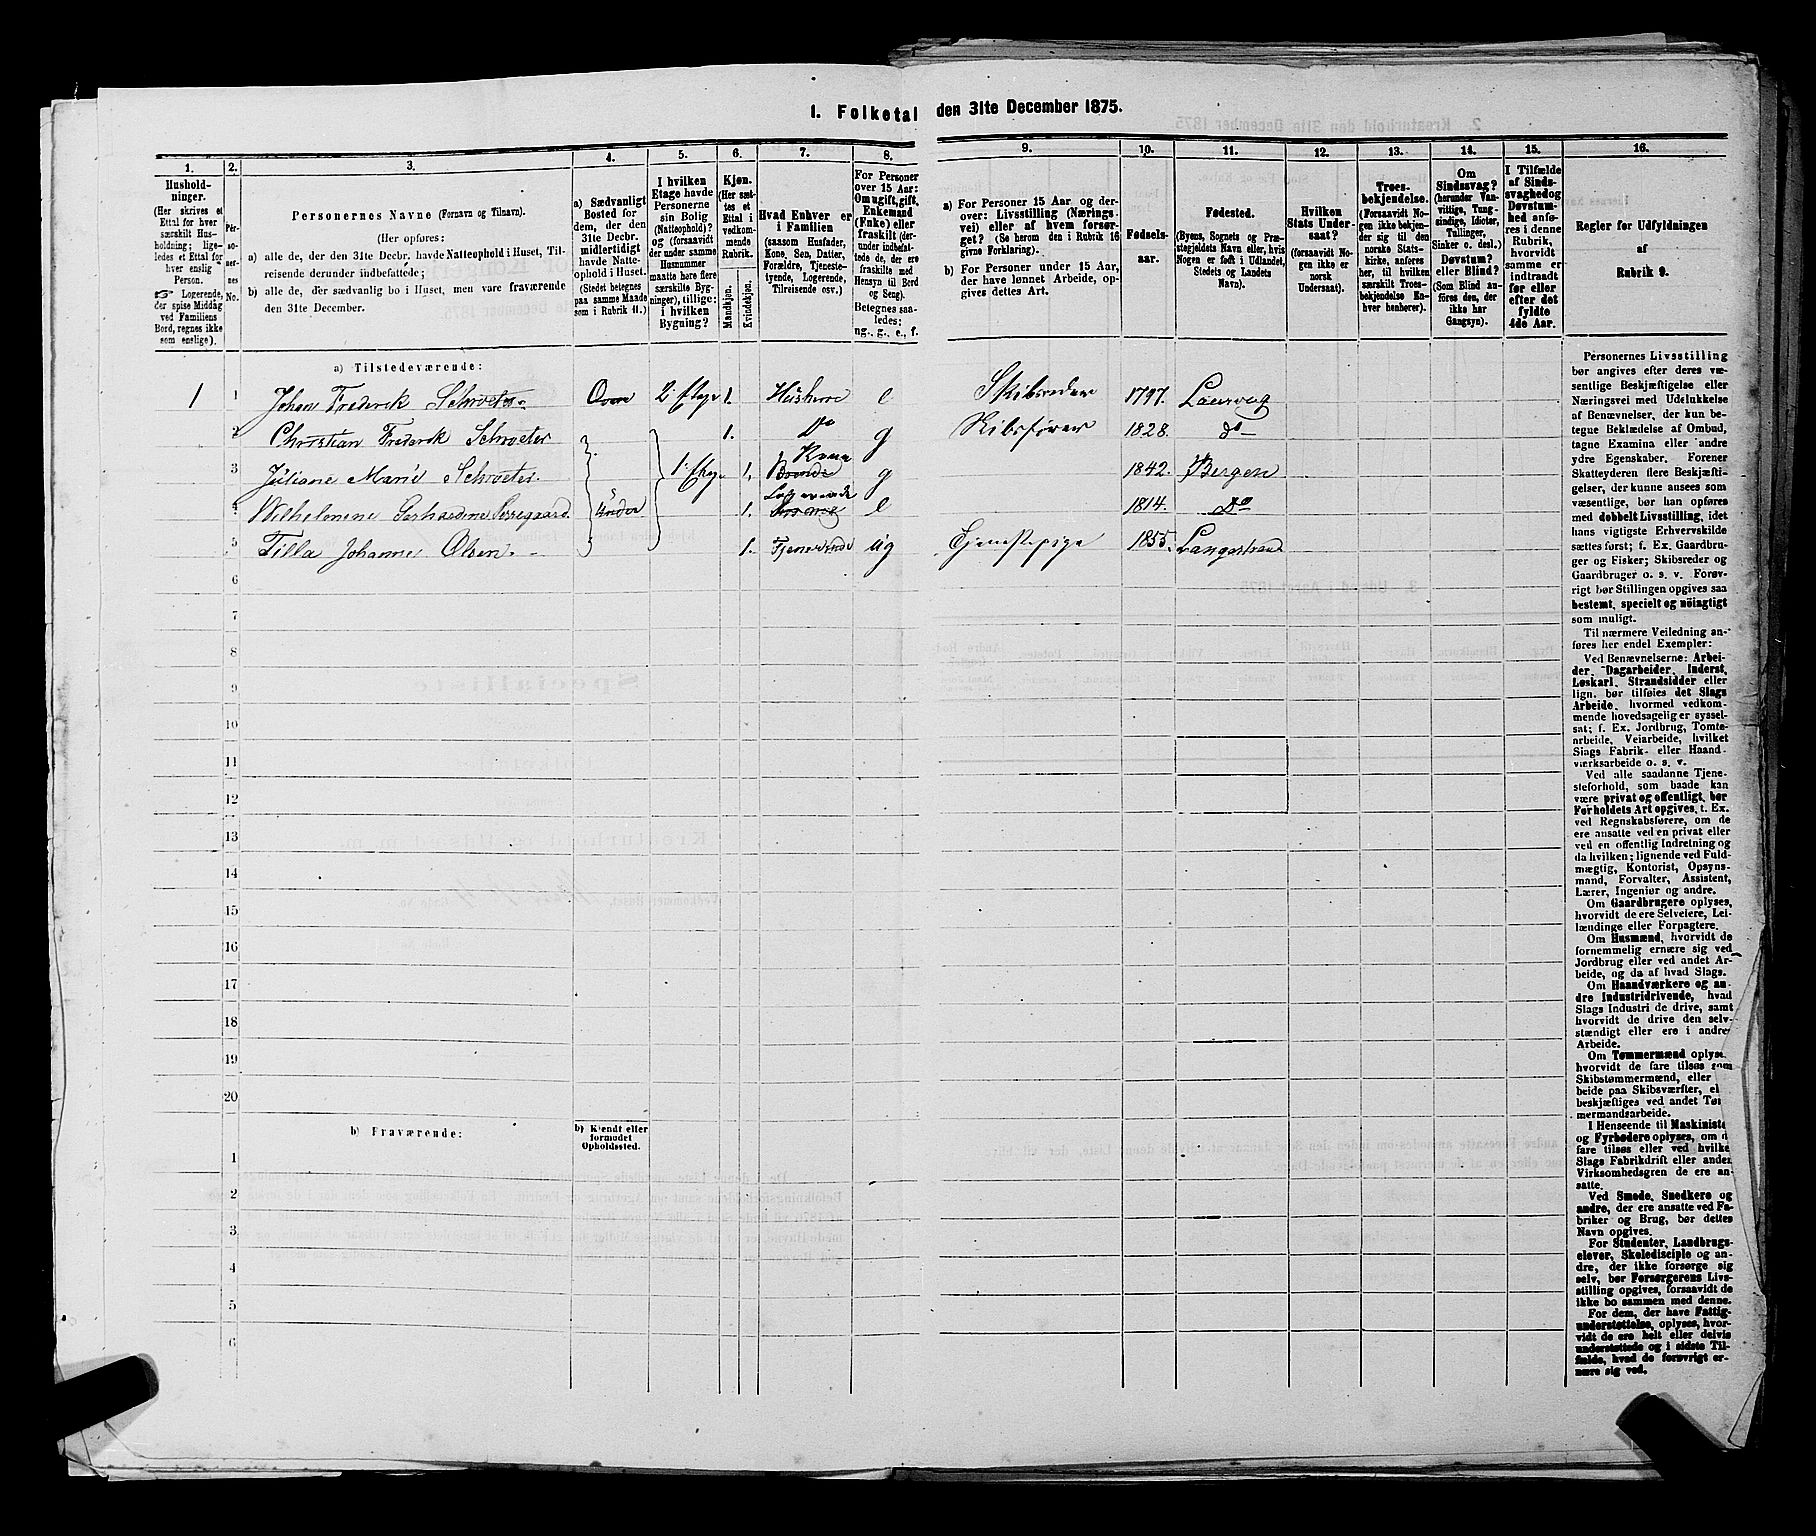 1. Folketal den 31te December 1875.
1. 2. 3. 4. 5. 6. 7. 8. 9. 10. 11. 12. 13. 14. 15. 16.
Hushold-
ninger.
(Her skrives et
Ettal for hver
særskilt Hus-
holdning; lige-
ledes et Ettal for
hver enslig
Person.
☞ Logerende,
der spise Middag
ved Familiens
Bord, regnes ikke
som enslige).
Per-
so-
ner-
nes
No.
Personernes Navne (Fornavn og Tilnavn).
(Her opføres:
a) alle de, der den 31te Decbr. havde Natteophold i Huset, Til-
reisende derunder indbefattede;
b) alle de, der sædvanlig bo i Huset, men vare fraværende
den 31te December.
a) Sædvanligt
Bosted for
dem, der den
31te Decbr.
midlertidigt
havde Natte-
ophold i Huset.
(Stedet betegnes
paa samme Maade
som i Rubrik 11.)
I hvilken
Etage havde
Personerne
sin Bolig
(Natteophold)?
og (forsaavidt
der under samme
Husnummer
maatte høre flere
særskilte Byg-
ninger), tillige:
i hvilken
Bygning?
Kjøn.
(Her sæt-
tes et
Ettal i
vedkom-
mende
Rubrik.
Mandkjøn.
Kvindekjøn.
Hvad Enhver er
i Familien
(saasom Husfader,
Kone, Søn, Datter,
Forældre, Tjeneste-
tyende, Logerende,
Tilreisende osv.)
For Personer
over 15 Aar:
Om ugift, gift,
Enkemand
(Enke) eller
fraskilt (der-
under indbefat-
tede de, der ere
fraskilte med
Hensyn til Bord
og Seng).
Betegnes saa-
ledes:
ug., g., e., f.
a) For Personer 15 Aar og der-
over: Livsstilling (Nærings-
vei) eller af hvem forsør-
get? (Se herom den i Rubrik 16
givne Forklaring).
b) For Personer under 15 Aar,
der have lønnet Arbeide, op-
gives dettes Art.
Fødsels-
aar.
Fødested.
(Byens, Sognets og Præ-
stegjeldets Navn eller, hvis
Nogen er født i Udlandet,
Stedets og Landets
Navn).
Hvilken
Stats Under-
saat?
(forsaavidt No-
gen ikke er
norsk
Undersaat).
Troes-
bekjendelse.
(Forsaavidt No-
gen ikke bekjen-
der sig til den
norske Stats-
kirke, anføres
her, til hvilken
særskilt Troes-
bekjendelse En-
hver henhører).
Om
Sindssvag?
(herunder Van-
vittige, Tung-
sindige, Idioter,
Tullinger,
Sinker o. desl.)
Døvstum?
eller Blind?
(Som Blind an-
føres den, der
ikke har
Gangsyn).
I Tilfælde
af Sinds-
svaghed og
Døvstum-
hed anfø-
res i denne
Rubrik,
hvorvidt
samme er
indtraadt
før eller
efter det
fyldte
4de Aar.
Regler for Udfyldningen
af
Rubrik 9.
a) Tilstedeværende:
1 1 Johan Frederik Schroeter Ovre 2. Etage 1. Husherre e Skibsreder 1797. Laurvig
2 Christian Frederik Schroeter 1. Do g Skibsfører 1828. do
3 Juliane Marie Schroeter. 1. Etage 1. Kone g 1842. Bergen
4 Wilhelmine Gerhardine Undre 1. Logerende e 1814. Do
5 Tilla Johanne Olsen. 1. Tjenerinde ug Tjenestepige 1855. Langestrand
6
7
8
9
10
11
12
13
14
15
16
17
18
19
20
b) Fraværende:
b) Kjendt eller
formodet
Opholdssted.
1
2
3
4
5
6
Personernes Livsstilling
bør angives efter deres væ-
sentlige Beskjæftigelse eller
Næringsvei med Udelukkelse
af Benævnelser, der kun be-
tegne Beklædelse af Ombud,
tagne Examina eller andre
ydre Egenskaber. Forener
Skatteyderen flere Beskjæfti-
gelser, der kunne ansees som
væsentlige, bør han opføres
med dobbelt Livsstilling, idet
hans vigtigste Erhvervskilde
sættes først; f. Ex. Gaardbru-
ger og Fisker; Skibsreder og
Gaardbruger o. s. v. Forøv-
rigt bør Stillingen opgives saa
bestemt, specielt og nöiagtigt
som muligt.
Til nærmere Veiledning an-
føres her endel Exempler:
Ved Benævnelserne: Arbei-
der, Dagarbeider, Inderst,
Løskarl, Strandsidder eller
lign. bør tilføies det Slags
Arbeide, hvormed vedkom-
mende hovedsagelig er syssel-
sat; f. Ex. Jordbrug, Tomte-
arbeide, Veiarbeide, hvilket
Slags Fabrik- eller Haand-
værksarbeide o. s. v.
Ved alle saadanne Tjene-
steforhold, som baade kan
være privat og offentligt, bør
Forholdets Art opgives, t. Ex.
ved Regnskabsførere, om de
ere ansatte ved en privat eller
ved en offentlig Indretning og
da hvilken; lignende ved Fuld-
mægtig, Kontorist, Opsyns-
mand, Forvalter, Assistent,
Lærer, Ingeniør og andre.
Om Gaardbrugere oplyses,
hvorvidt de ere Selveiere, Lei-
lændinge eller Forpagtere.
Om Husmænd, hvorvidt de
fornemmelig ernære sig ved
Jordbrug eller ved andet Ar-
beide, og da af hvad Slags.
Om Haandværkere og an-
dre Industridrivende, hvad
Slags Industri de drive, samt
hvorvidt de drive den selv-
stændigt eller ere i andres
Arbeide.
Om Tømmermænd oplyses
hvorvidt de fare tilsøs som
Skibstømmermænd, eller
beide paa Skibsværfter, el
beskjæftiges ved andet Tøm-
mermandsarbeide.
I Henseende til Maskiniste
og Fyrbødere oplyses, om d
fare tilsøs eller ved hvilke
Slags Fabrikdrift eller anden
Virksomhedsgren de ere an-
satte.
Ved Smede, Snedkere og
andre, der ere ansatte ved Fa-
briker og Brug, bør dettes
Navn opgives.
For Studenter, Landbrugs-
elever, Skoledisciple og an-
dre, der ikke forsørge sig
selv, bør Forsørgerens Livs-
stilling opgives, forsaavidt de
ikke bo sammen med denne.
For dem, der have Fattig-
understøttelse, oplyses, hvor-
vidt de ere helt eller delvis
understøttede og i sidste Til-
fælde, hvad de forøvrigt er-
nære sig ved.